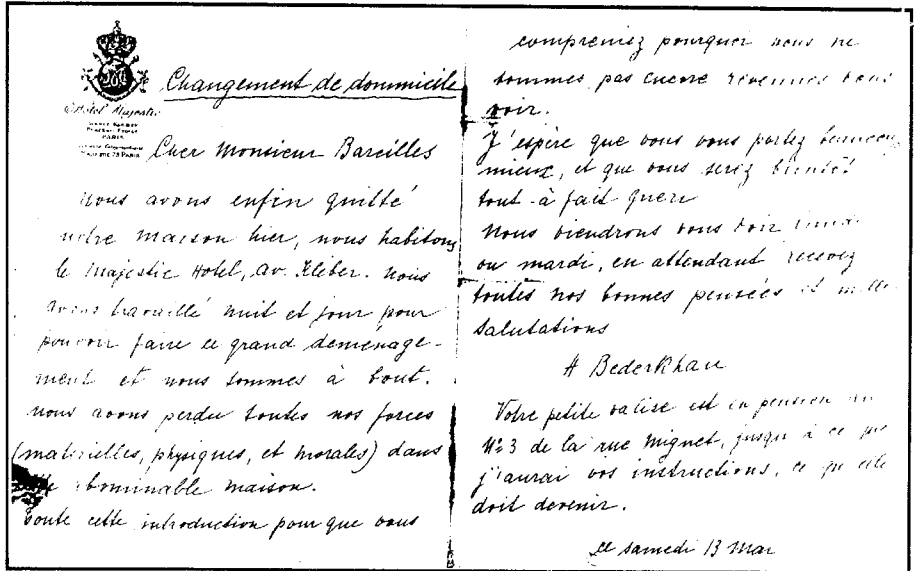 Hôtel Majestic
PARIS
Changement de dommicile
Cher Monsieur Bareilles
nous avons enfin quitté
notre maison hier, nous habitons
le Majestic Hotel, av. Kléber. nous
avons travaillé nuit et jour pour
pouvoir faire ce grand déménage-
ment et nous sommes à bout.
nous avons perdu toutes nos forces
(matérielles, physiques, et morales) dans
abominable maison.
toute cette introduction pour que vous
compreniez pourquoi nous ne
sommes pas encore revenues vous
voir.
J'espère que vous vous portez beaucoup
mieux, et que vous serez bientôt
tout-à fait gueri
nous viendrons vous voir lundi
ou mardi, en attendant recevez
toutes nos bonnes pensées et mille
salutations
H Bederkhan
Votre petite valise est en pension au
N: 3 de la rue Mignet, jusqu'à ce que
j'aurai vos instructions, ce qu'elle
doit devenir.
ce samedi 13 Mar